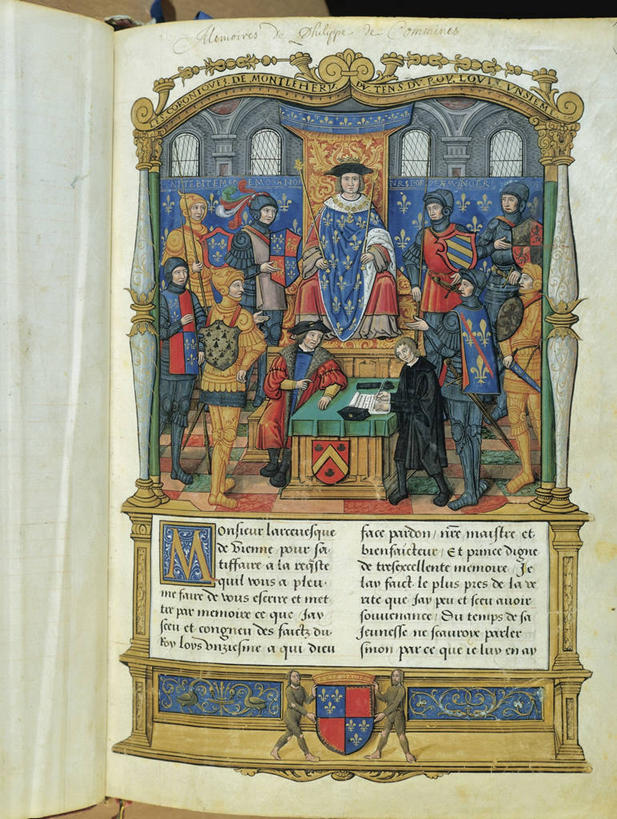 Memoires de Philippe de Commines
LES CRONIQUES DE MONTLEHERY DV TENS DV ROY LOVIS VNSIEME
Monsieur larcevesque
de Vienne pour sa
tiffaire a la reqste
quil vous a pleu
me faire de vous escrire et met
tre par memoire ce que Jay
sceu et congneu des faictz du
Roy loys unziesme a qui dieu
face pardon / nre maistre et
bienfaicteur / Et prince digne
de tresexcellente memoire / Je
lay faict le plus pres de la ve
rite que Jay peu et sceu avoir
souvenance / Du temps de sa
Jeunesse ne scauroye parler
sinon par ce que ie luy en ay